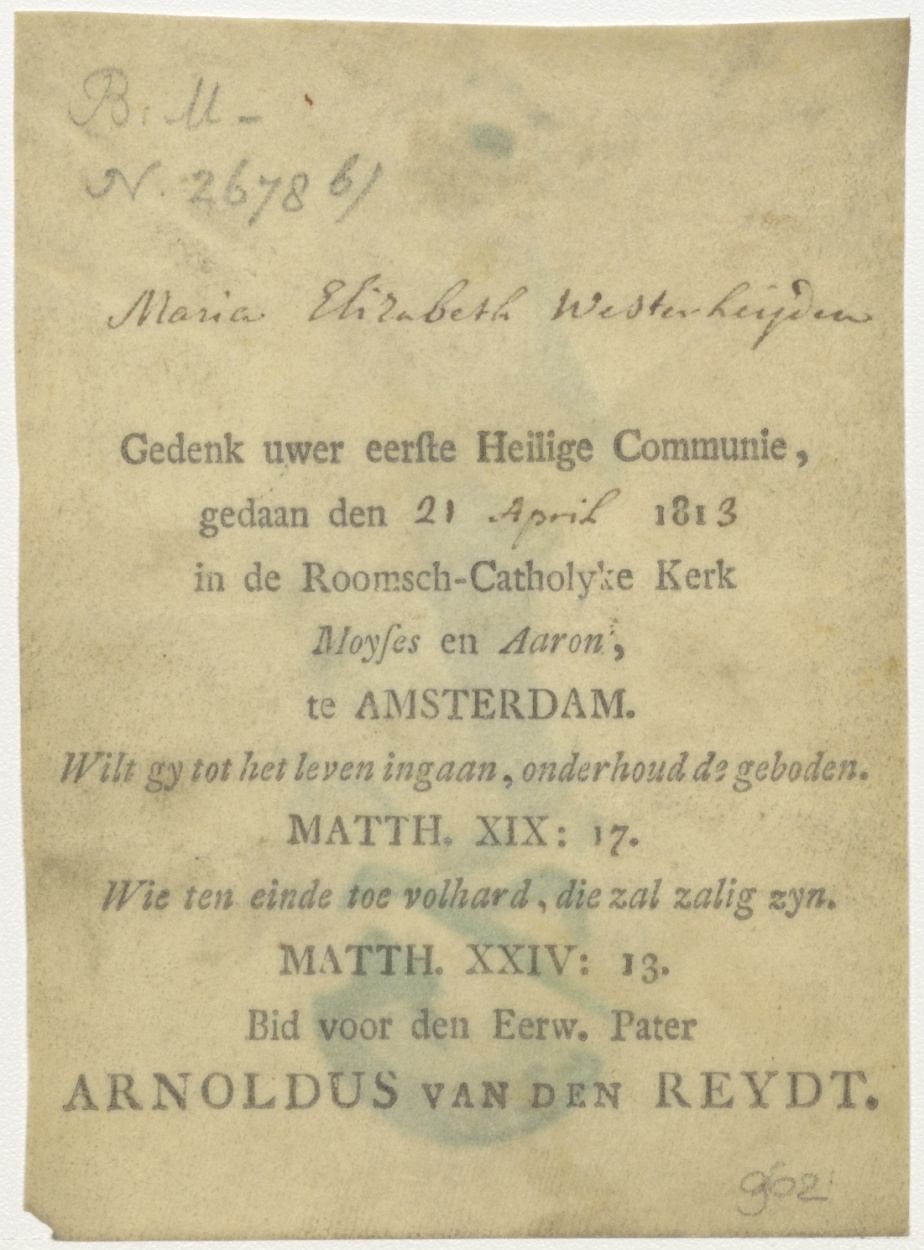 B: M-
N. 2678 b)
Maria Elizabeth Westerheijden
Gedenk uwer eerſte Heilige Communie,
gedaan den 21 April 1813
in de Roomsch-Catholyke Kerk
Moyſes en Aaron,
te AMSTERDAM.
Wilt gy tot het leven ingaan, onderhoud de geboden.
MATTH. XIX: 17.
Wie ten einde toe volhard, die zal zalig zyn.
MATTH. XXIV: 13.
Bid voor den Eerw. Pater
ARNOLDUS VAN DEN REYDT.
902